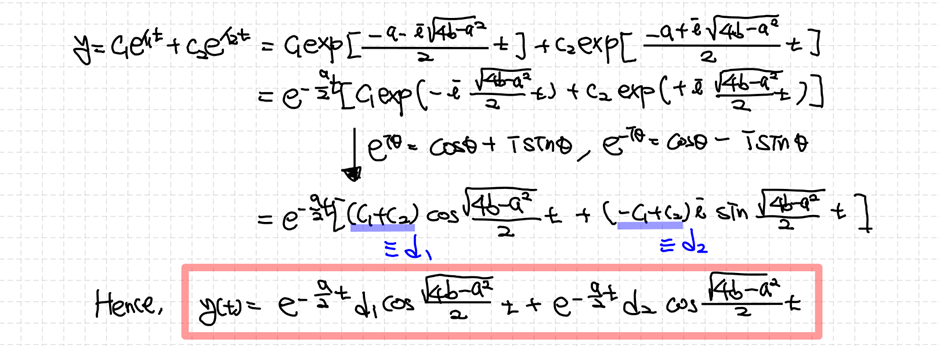 y = C₁e^{r₁t} + C₂e^{r₂t} = C₁exp[(-a - i√(4b-a²))/2 t] + C₂exp[(-a + i√(4b-a²))/2 t]
= e^{-a/2 t}[C₁exp(-i √(4b-a²)/2 t) + C₂exp(+i √(4b-a²)/2 t)]
↓ e^{iθ} = cosθ + i sinθ, e^{-iθ} = cosθ - i sinθ
= e^{-a/2 t}[(C₁+C₂) cos √(4b-a²)/2 t + (-C₁+C₂) i sin √(4b-a²)/2 t]
≡ d₁ ≡ d₂
Hence, y(t) = e^{-a/2 t} d₁ cos √(4b-a²)/2 t + e^{-a/2 t} d₂ cos √(4b-a²)/2 t